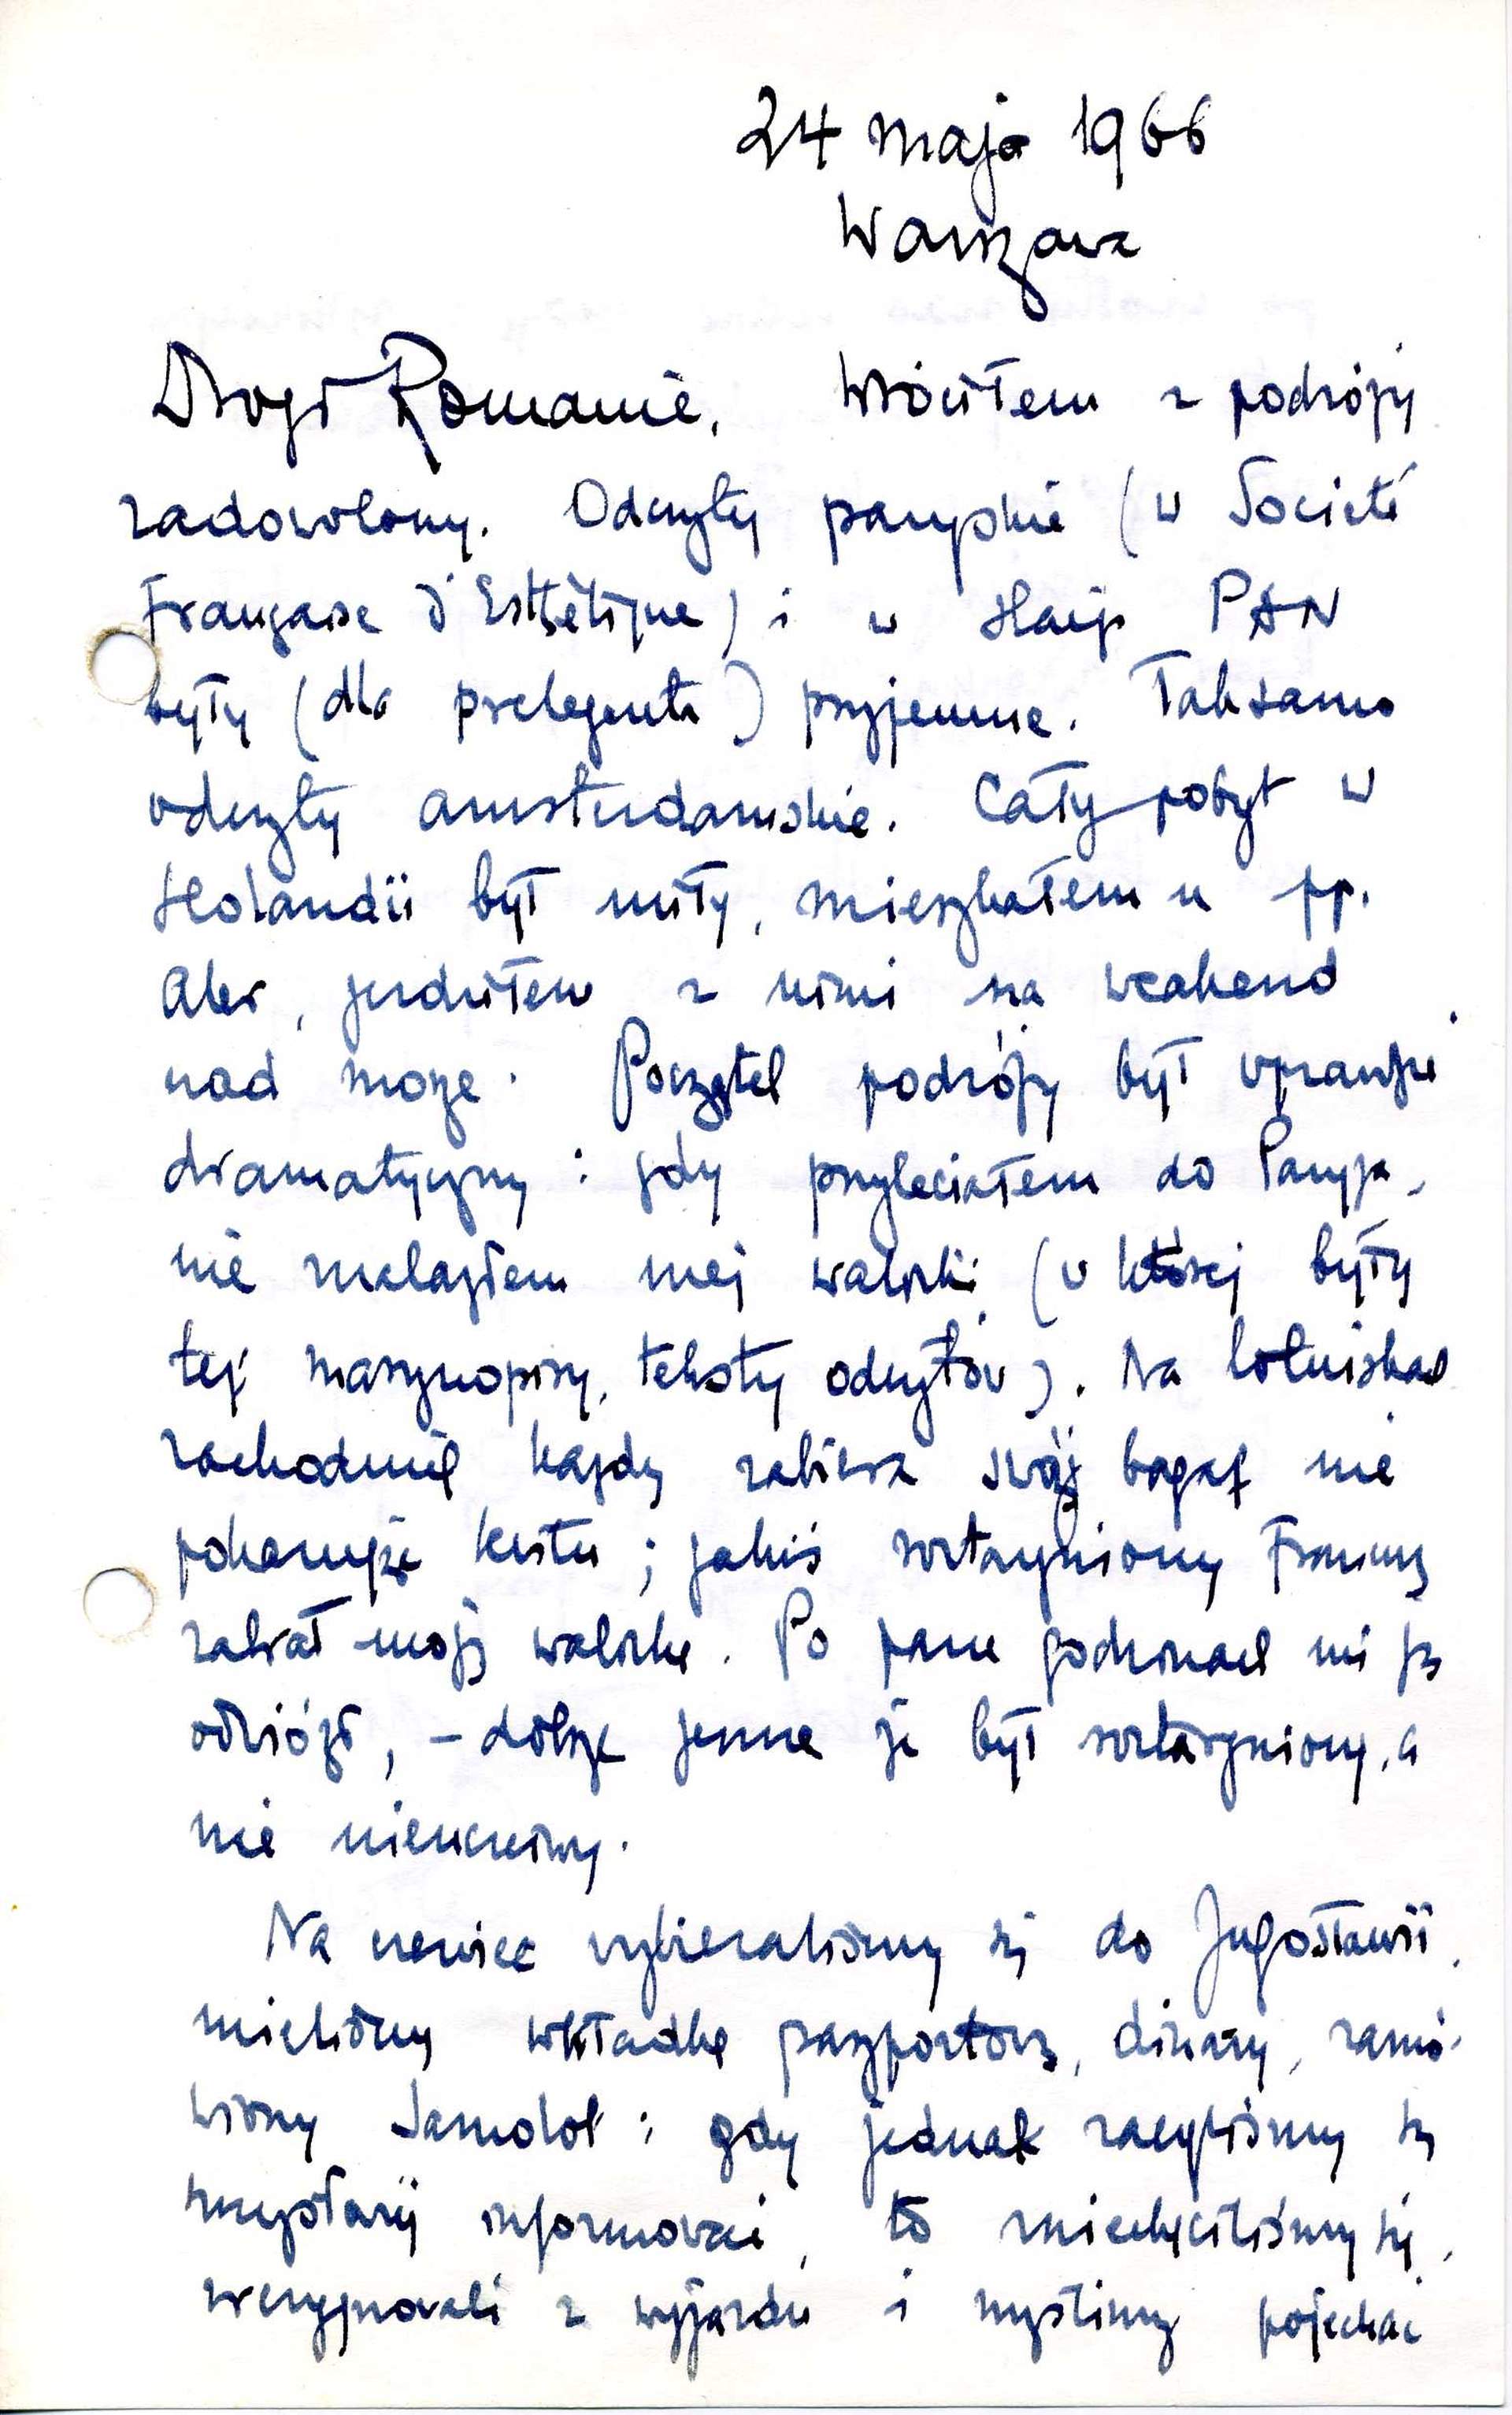 24 maja 1966
Warszawa
Drogi Romanie, Wróciłem z podróży
zadowolony. Odczyty paryskie (w Societé
Française d'Esthétique) i w stacji PAN
były (dla prelegenta) przyjemne. Taksamo
odczyty amsterdamskie. Cały pobyt w
Holandii był miły, mieszkałem u pp.
Aler, jeździłem z nimi na weakend
nad morze. Początek podróży był wprawdzie
dramatyczny: gdy przyleciałem do Paryża,
nie znalazłem mej walizki (w której były
też maszynopisy, teksty odczytów). Na lotniskach
zachodnich każdy zabiera swój bagaż nie
pokazując kwitu; jakiś roztargniony Francuz
zabrał moją walizkę. Po paru godzinach mi ją
odwiózł, – dobrze jeszcze że był roztargniony, a
nie nieuczciwy.
Na czerwiec wybieraliśmy się do Jugosławii,
mieliśmy wkładkę paszportową, dinary, zamó-
wiony samolot; gdy jednak zaczęliśmy się
informować, to zniechęciliśmy się,
zrezygnowali z wyjazdu i myślimy pojechać